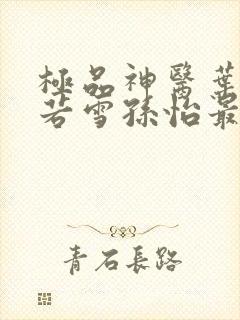 極品神醫葉
若雪孫怡最
青石長路